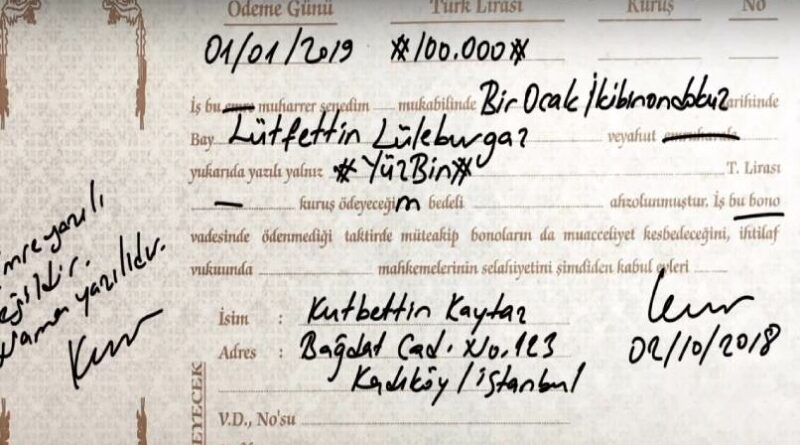 Ödeme Günü Türk Lirası Kuruş No
01/01/2019 #100.000#
İş bu emre muharrer senedim mukabilinde Bir Ocak İkibinondokuz tarihinde
Bay Lütfettin Lüleburgaz veyahut emruhavale
yukarıda yazılı yalnız #YüzBin# T. Lirası
— kuruş ödeyeceğim bedeli ahzolunmuştur. İş bu bono
vadesinde ödenmediği taktirde müteakip bonoların da muacceliyet kesbedeceğini, ihtilaf
vukuunda mahkemelerinin selahiyetini şimdiden kabul eyleri
İsim : Kutbettin Kaytaz
Adres : Bağdat Cad. No.123
Kadıköy/İstanbul
02/10/2018
V.D., No'su :
EYECEK
mre yazılı
eğildir.
Nama yazılıdır.